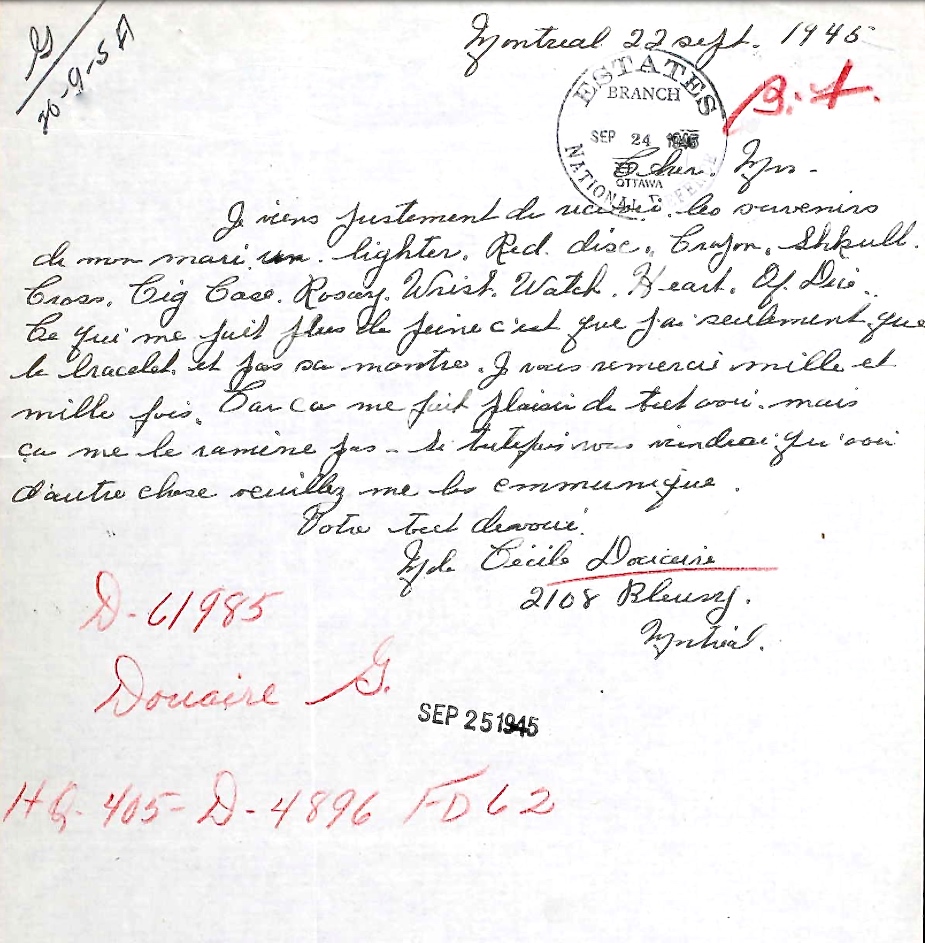 G
20-9-5
Montreal 22 sept. 1945
ESTATES
BRANCH
SEP 24 1945
OTTAWA
NATIONAL DEFENCE
Cher Mrs -
Je viens justement de recevoir les souvenirs
de mon mari. un. lighter. Red. disc. Crayon. Shkull.
Cross. Cig Case. Rosary. Wrist. Watch. Heart. Of
Ce qui me fait plus de peine c'est que j'ai seulement que
le bracelet. et pas sa montre. Je vous remerci mille et
mille fois. Car ca me fait plaisir de tout avoi. mais
ça me le ramène pas - si toutefois vous qu'avoi
d'autre chose veuillez me les communique.
Votre tout devoué.
Mde Cécile Douaire
2108
Montréal.
D-61985
Douaire G.
SEP 25 1945
HQ-405-D-4896 FD 62